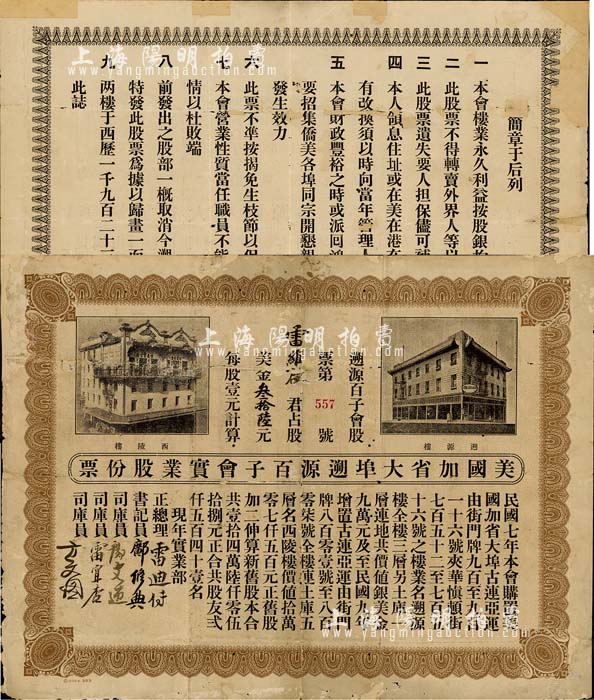 上海陽明拍賣
www.yangmingauction.com
簡章于后列
一 本會樓業永久利益按股銀
二 此股票不得轉賣外界人等以
三 此股票遺失要人担保儘可
四 本人領息住址或在美在港
有改換須以時向當年管理人
五 本會財政豐裕之時或派囘
要招集僑美各埠同宗開懇親
發生效力
六 此票不準按揭免生枝節以
七 本會營業性質當任職員不能
情以杜敗端
八 前發出之股部一概取消今
特發此股票爲據以歸畫一
九 兩樓于西歷一千九百二十二
此誌
遡源樓
西陵樓
遡源百子會股
票第 557 號
雷 君占股
美金叁拾陸元
每股壹元計算
美國加省大埠遡源百子會實業股份票
民國七年本會購置美
國加省大埠古連亞運
由街門牌九百至九百
一十六號夾華慎頓街
七百五十二至七百五
十六號之樓業名遡源
樓全樓三層另土庫一
層連地共價值銀美金
九萬元及至民國九年
增置古連亞運由街門
牌八百零壹號至八百
零柒號全樓連土庫五
層名西陵樓價值拾萬
零七仟五百元正舊股
加二伸算新舊股本合
共壹十四萬陸仟零五
拾捌元正合共股友弍
仟五百四十壹名
現年實業部
正總理 雷迪
書記員 鄺修典
司庫員
司庫員 雷宜
司庫員 方文